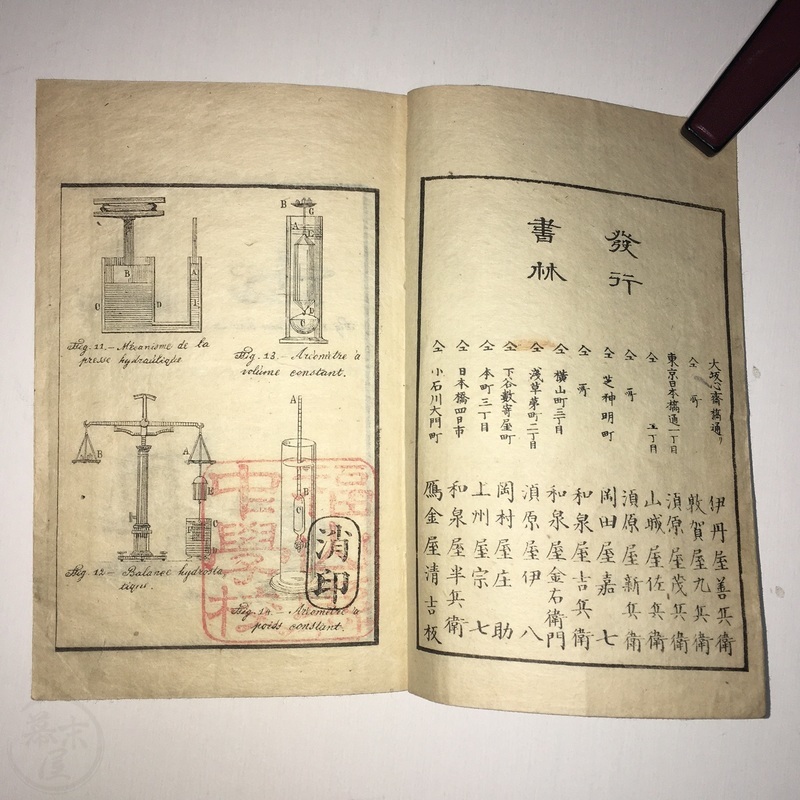 發行
書林
大坂心斎橋通り 伊丹屋善兵衛
仝 所 敦賀屋九兵衛
東京日本橋通一丁目 須原屋茂兵衛
仝 二丁目 山城屋佐兵衛
仝 所 須原屋新兵衛
仝 芝神明町 岡田屋嘉七
仝 所 和泉屋吉兵衛
仝 横山町三丁目 和泉屋金右衛門
仝 浅草茅町二丁目 須原屋伊八
仝 下谷數寄屋町 岡村屋庄助
仝 本町三丁目 上州屋宗七
仝 日本橋四日市 和泉屋半兵衛
仝 小石川大門町 鴈金屋清吉板
B
A
C
D
Fig. 11.— Mécanisme de la
presse hydraulique.
B
G
A
E
D
C
Fig. 13.— Aréomètre à
volume constant.
B
A
B
C
D
Fig. 12.— Balance hydrosta-
tique.
A
B
C
Fig. 14. Aréomètre à
poids constant.
中學校
消印
幕末屋